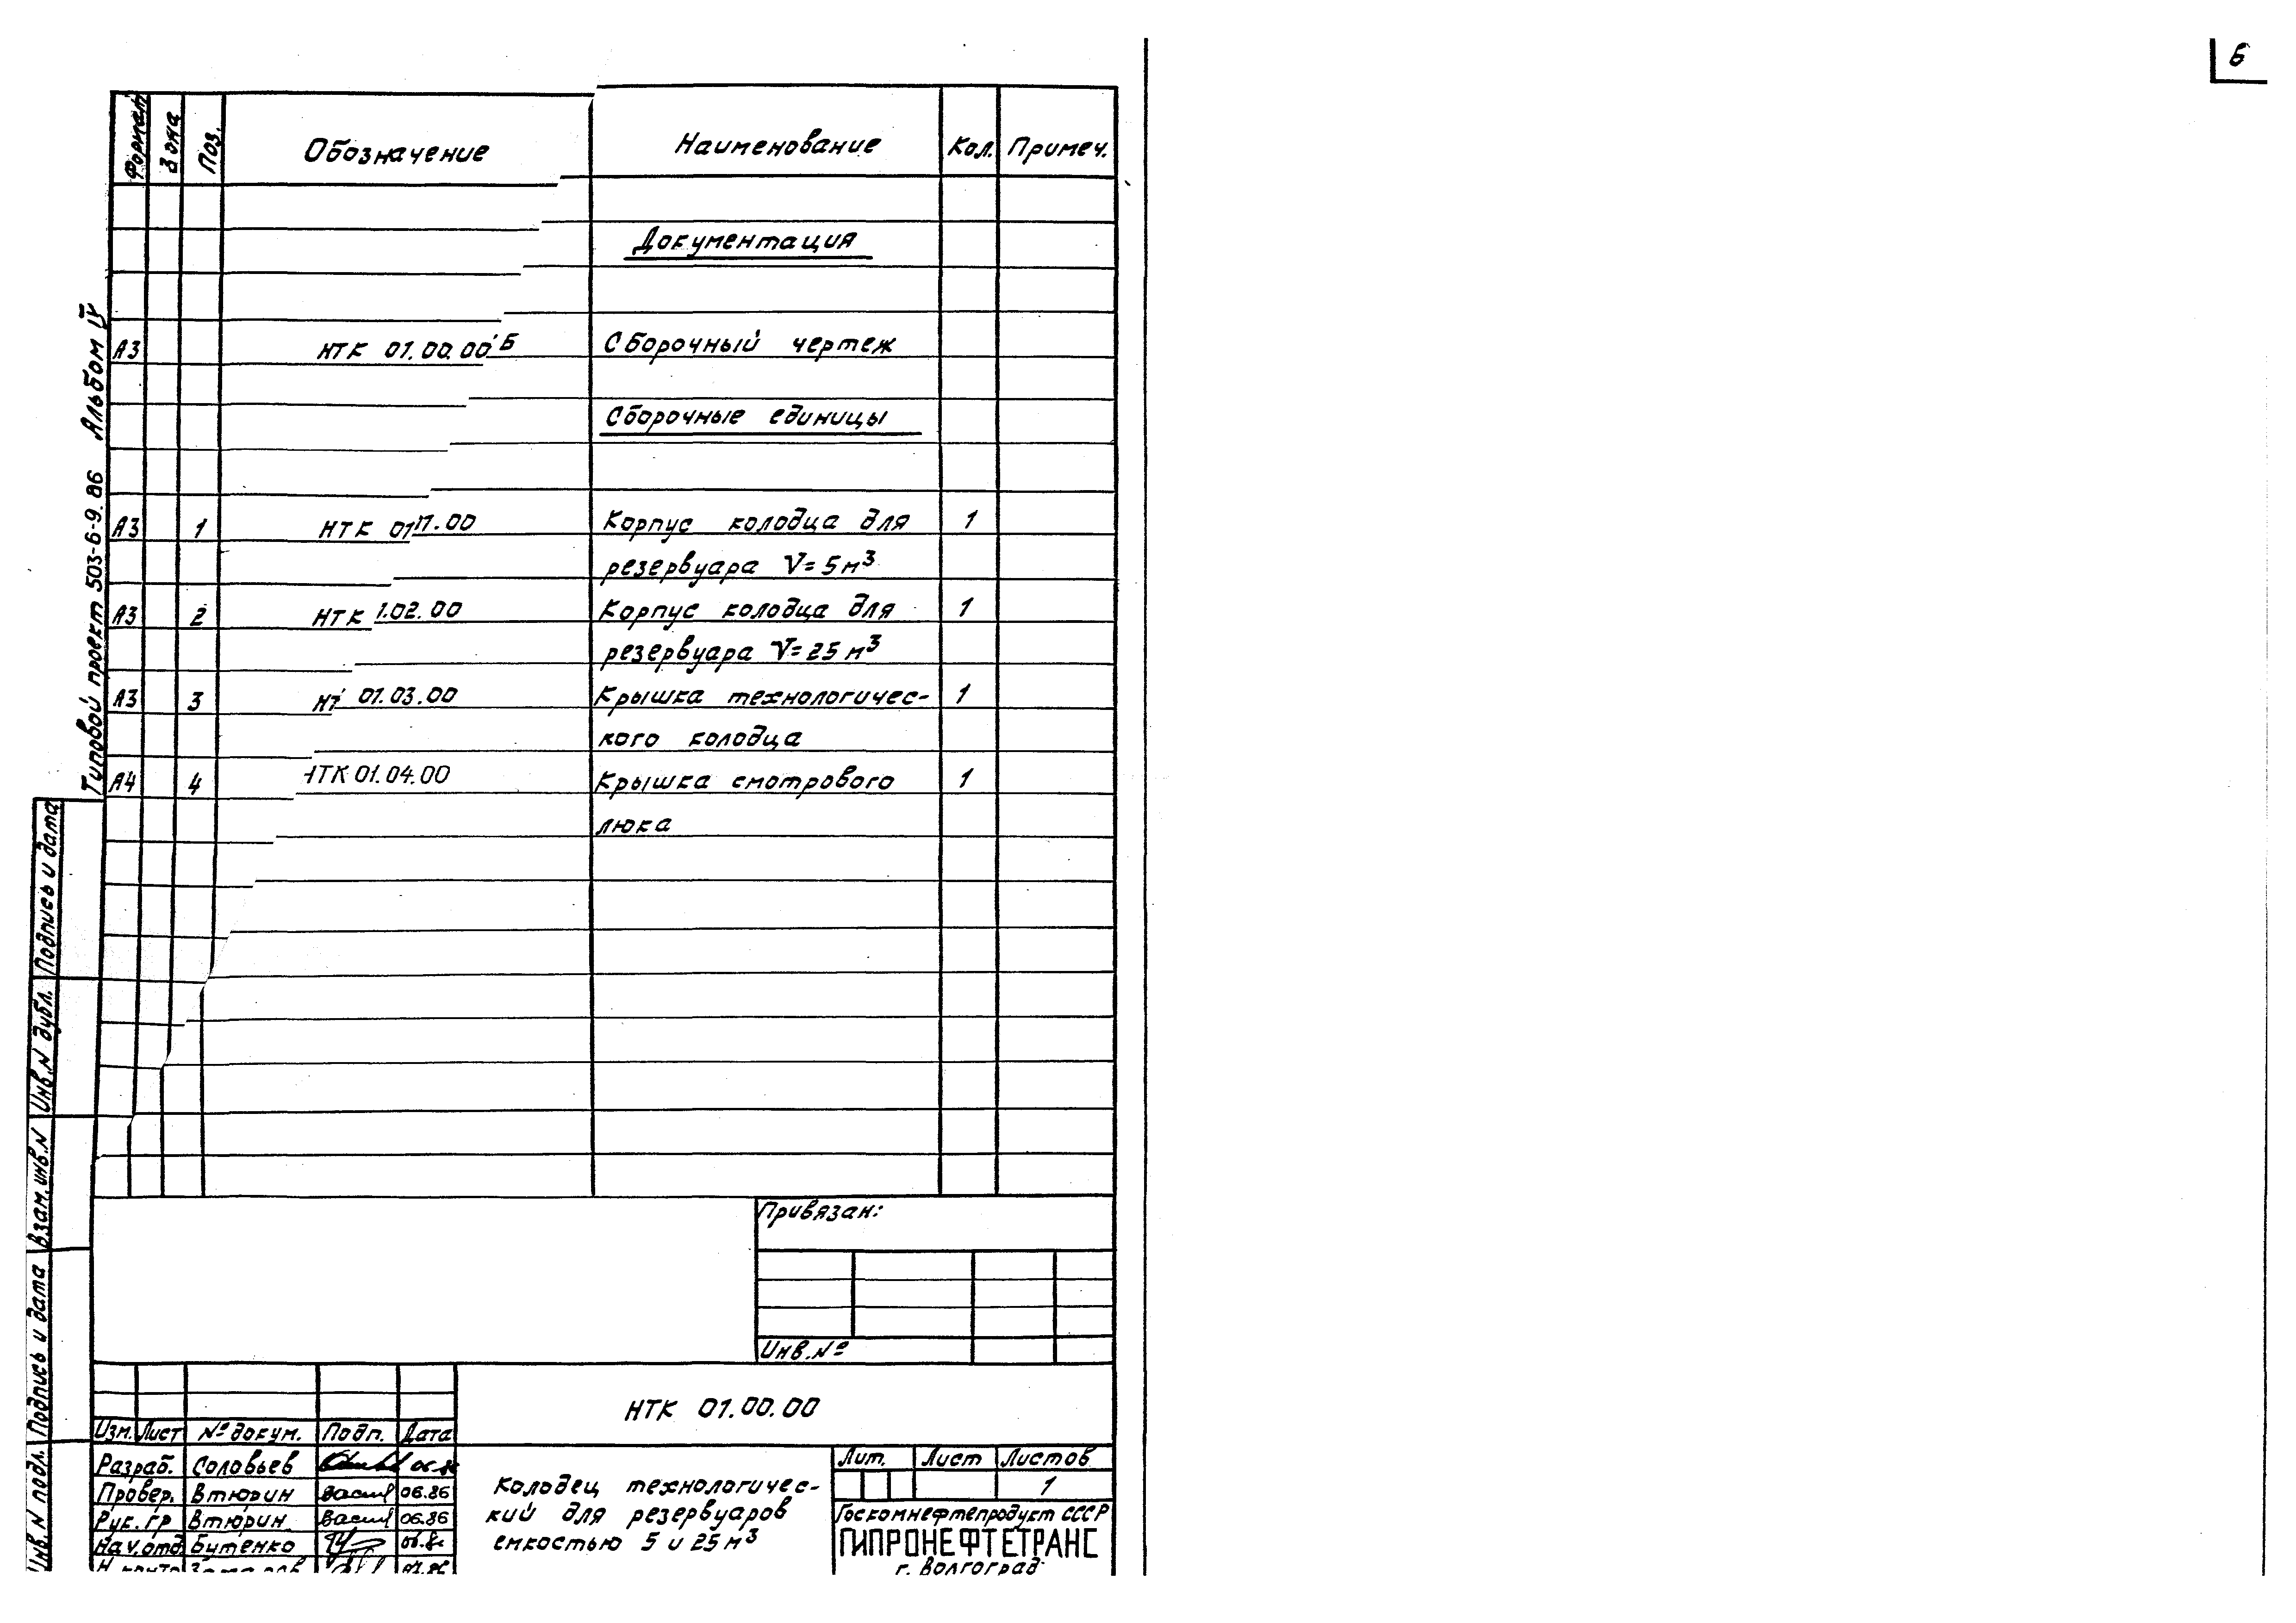 Б
Формат Зона Поз. Обозначение Наименование Кол. Примеч.
Документация
А3 НТК 01.00.00 Б Сборочный чертеж
Сборочные единицы
А3 1 НТК 01 .00 Корпус колодца для 1
резервуара V=5м³
А3 2 НТК 1.02.00 Корпус колодца для 1
резервуара V=25м³
А3 3 НТ 01.03.00 Крышка технологичес- 1
кого колодца
А4 4 НТК 01.04.00 Крышка смотрового 1
люка
Типовой проект 503-6-9.86 Альбом IV
Подпись и дата
Инв.N дубл.
Взам.инв.N
Подпись и дата
Инв.N подл.
Привязан:
Инв.№
НТК 01.00.00
Изм. Лист № докум. Подп. Дата
Разраб. Соловьев 06.86
Провер. Втюрин 06.86
Рук.гр Втюрин 06.86
Нач.отд Бутенко 06.8
Н.контр
Колодец технологичес-
кий для резервуаров
емкостью 5 и 25м³
Лит. Лист Листов
1
Госкомнефтепродукт СССР
ГИПРОНЕФТЕТРАНС
г. Волгоград